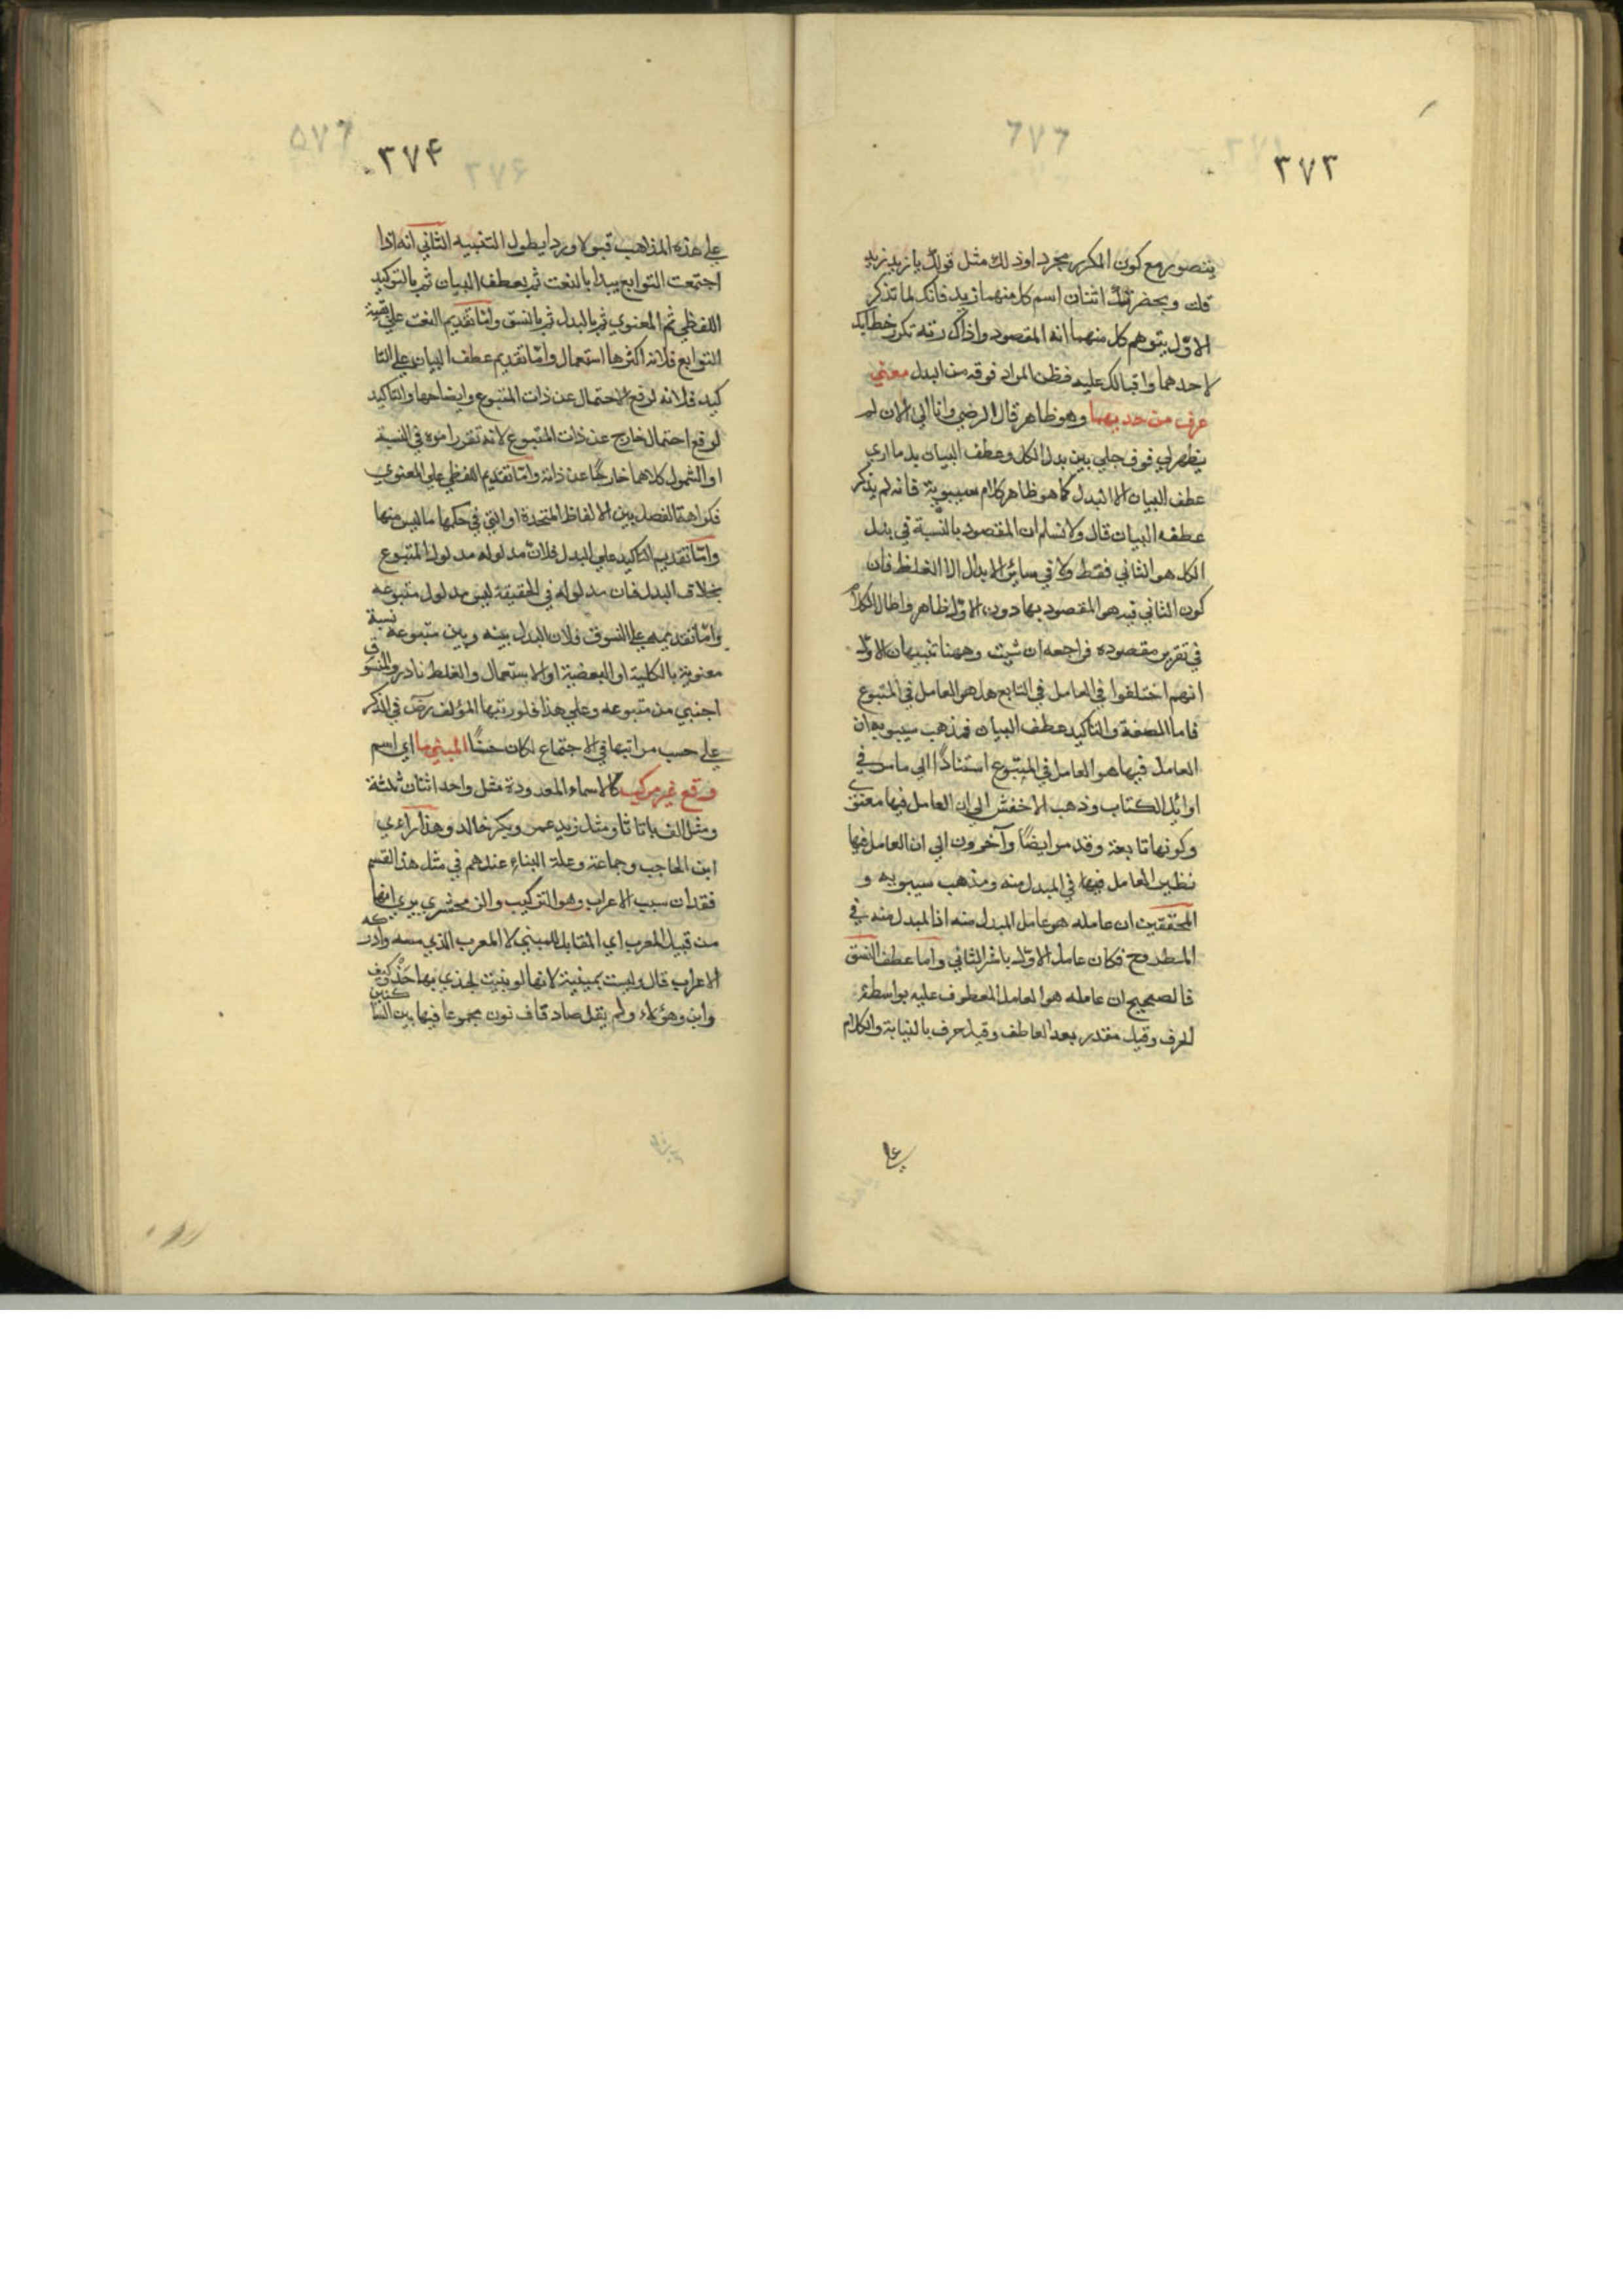 ٣٧٣
يتصور مع كون المكرر مجردا وذلك مثل قولك يا زيد زيد
قلت وبحضرتك اثنان اسم كل منهما زيد فانك لما تذكر
الاول يتوهم كل منهما انه المقصود واذا كررته تكرر خطابك
لاحدهما واقبالك عليه فظن المراد فوقه من البدل معنى
عرف من حديهما وهو ظاهر قال الرضي وانا الى الان لم
يظهر لي فرق جلي بين بدل الكل وعطف البيان بل ما ارى
عطف البيان الا البدل كما هو ظاهر كلام سيبويه فانه لم يذكر
عطف البيان قال ولا نسلم ان المقصود بالنسبة في بدل
الكل هو الثاني فقط ولا في سائر الابدال الا الغلط فان
كون الثاني فيه هو المقصود بها دون الاول ظاهر واطال الكلام
في تقرير مقصوده فراجعه ان شيت وههنا تنبيهان الاول
انهم اختلفوا في العامل في التابع هل هو العامل في المتبوع
فاما الصفة والتاكيد وعطف البيان فمذهب سيبويه ان
العامل فيها هو العامل في المتبوع استنادًا الى ما مر في
اوائل الكتاب وذهب الاخفش الى ان العامل فيها معنوي
وكونها تابعة وقد مر ايضًا وآخرون الى ان العامل فيها
نظير العامل فيها في المبدل منه ومذهب سيبويه و
المحققين ان عامله هو عامل المبدل منه اذ المبدل منه في
المطروح فكان عامل الاول باشر الثاني واما عطف النسق
فالصحيح ان عامله هو العامل المعطوف عليه بواسطة
الحرف وقيل مقدر بعد العاطف وقيل حرف بالنيابة والكلام
على
٣٧۴
على هذه المذاهب قبولا وردا يطول التنبيه الثاني انه اذا
اجتمعت التوابع يبدا بالنعت ثم بعطف البيان ثم بالتوكيد
اللفظي ثم المعنوي ثم بالبدل ثم بالنسق وامّا تقديم النعت على بقية
التوابع فلانه اكثرها استعمال وامّا تقديم عطف البيان على التا
كيد فلانه لرفع الاحتمال عن ذات المتبوع وايضاحها والتاكيد
لرفع احتمال خارج عن ذات المتبوع لانه تقرر امره في النسبة
او الشمول كلاهما خارجًا عن ذاته وامّا تقديم اللفظي على المعنوي
فكراهة الفصل بين الالفاظ المتحدة او التي في حكمها ما ليس منها
وامّا تقديم التاكيد على البدل فلان مدلوله مدلول المتبوع
بخلاف البدل فان مدلوله في الحقيقة ليس مدلول متبوعه
وامّا تقديمه على النسوق فلان البدل بينه وبين متبوعه نسبة
معنوية بالكلية او البعضية او الاستعمال والغلط نادر والمنسوق
اجنبي من متبوعه وعلى هذا فلو رتبها المؤلف رض في الذكر
على حسب مراتبها في الاجتماع لكان حسنًا المبني ما اي اسم
وقع غير مركب كالاسماء المعدودة مثل واحد اثنان ثلثة
ومثل الف با تا ثا ومثل زيد عمرو بكر خالد وهذا راءي
ابن الحاجب وجماعة وعلة البناء عندهم في مثل هذا القسم
فقدان سبب الاعراب وهو التركيب والزمخشري يرى انها
من قبيل المعرب اي المقابل للمبني لا المعرب الذي مسه وادركه
الاعراب قال وليست بمبنية لانها لو بنيت لحذي بها حَذْو كيف
واين وهؤلاء ولم يقل صاد قاف نون مجموعا فيها بين الساكنين